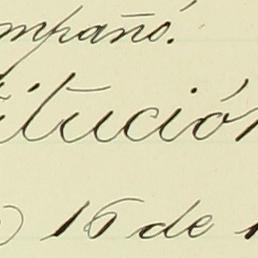 ompañó.
titución
16 de